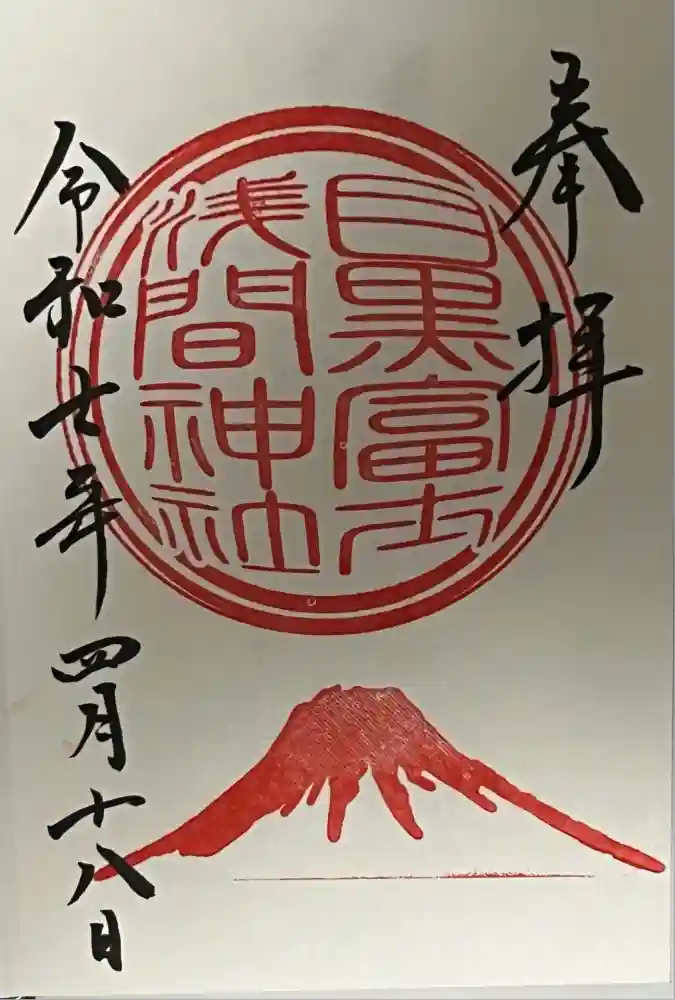 奉拝
目黒富士
浅間神社
令和七年四月十八日